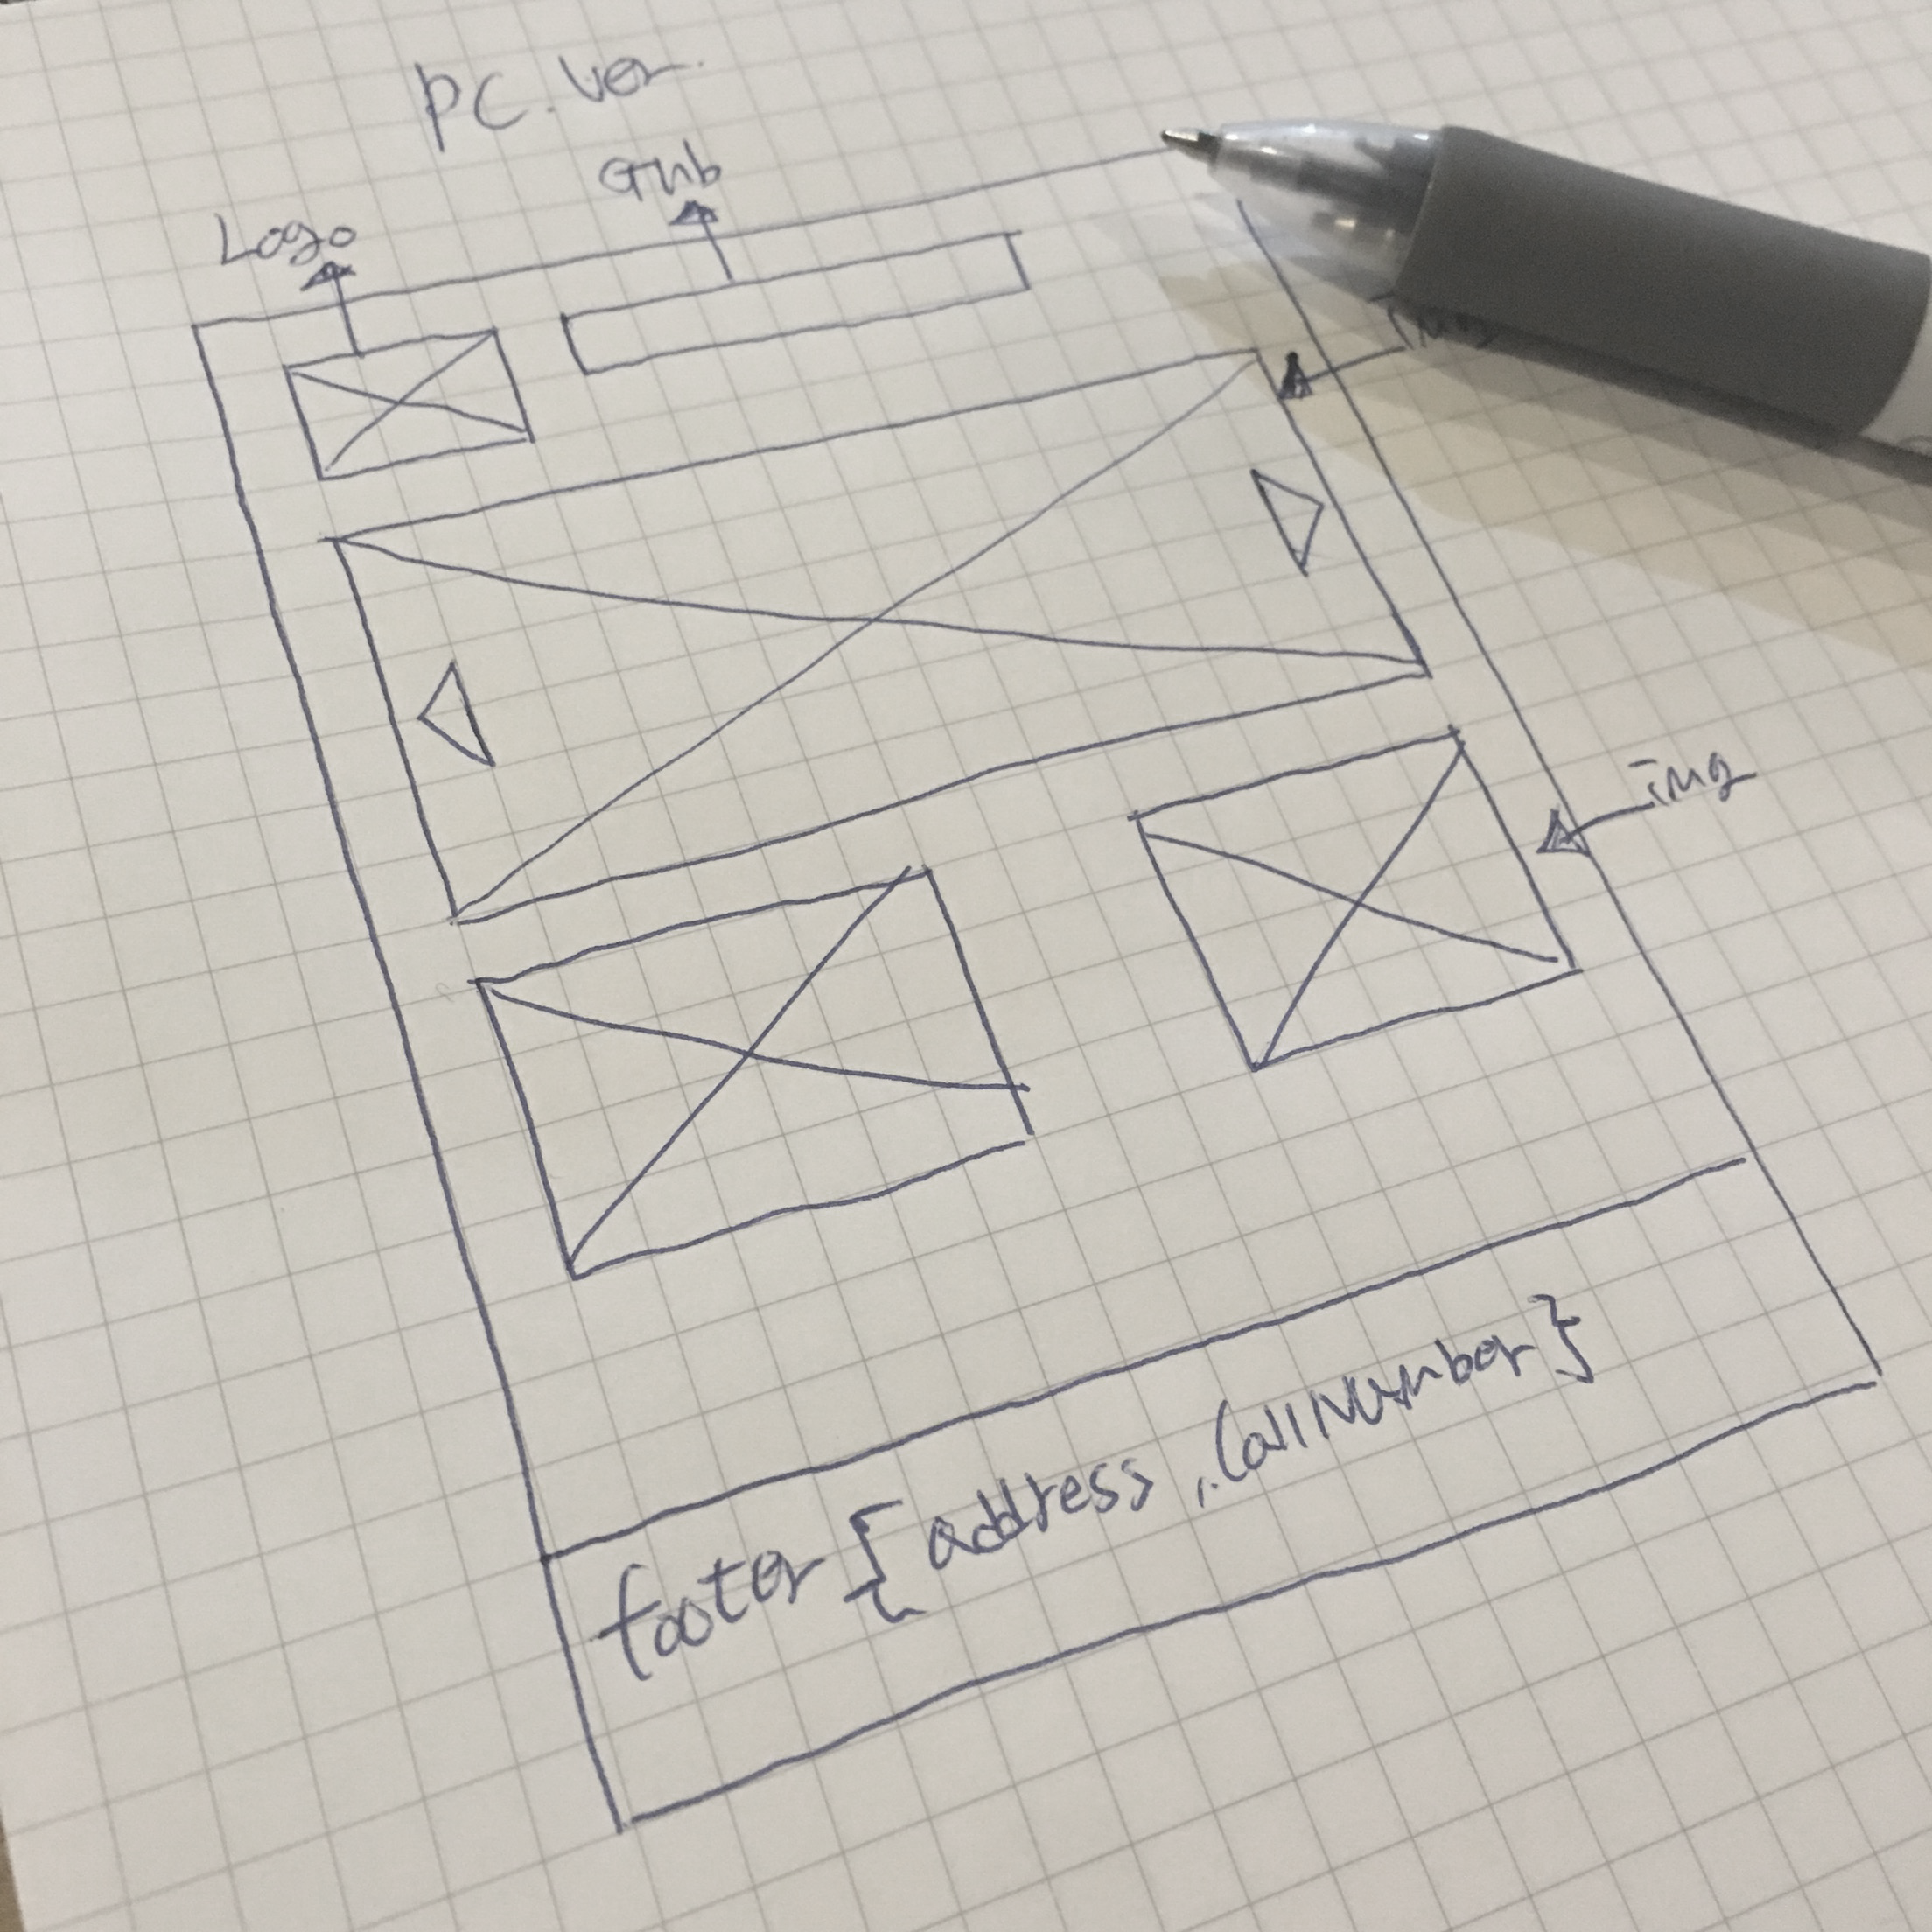 PC.Ver.
Gnb
Logo
img
footer { address , CallNumber }